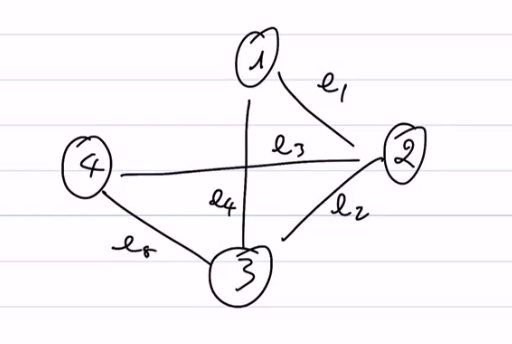 1
e1
4
e3
2
e4
e2
e5
3